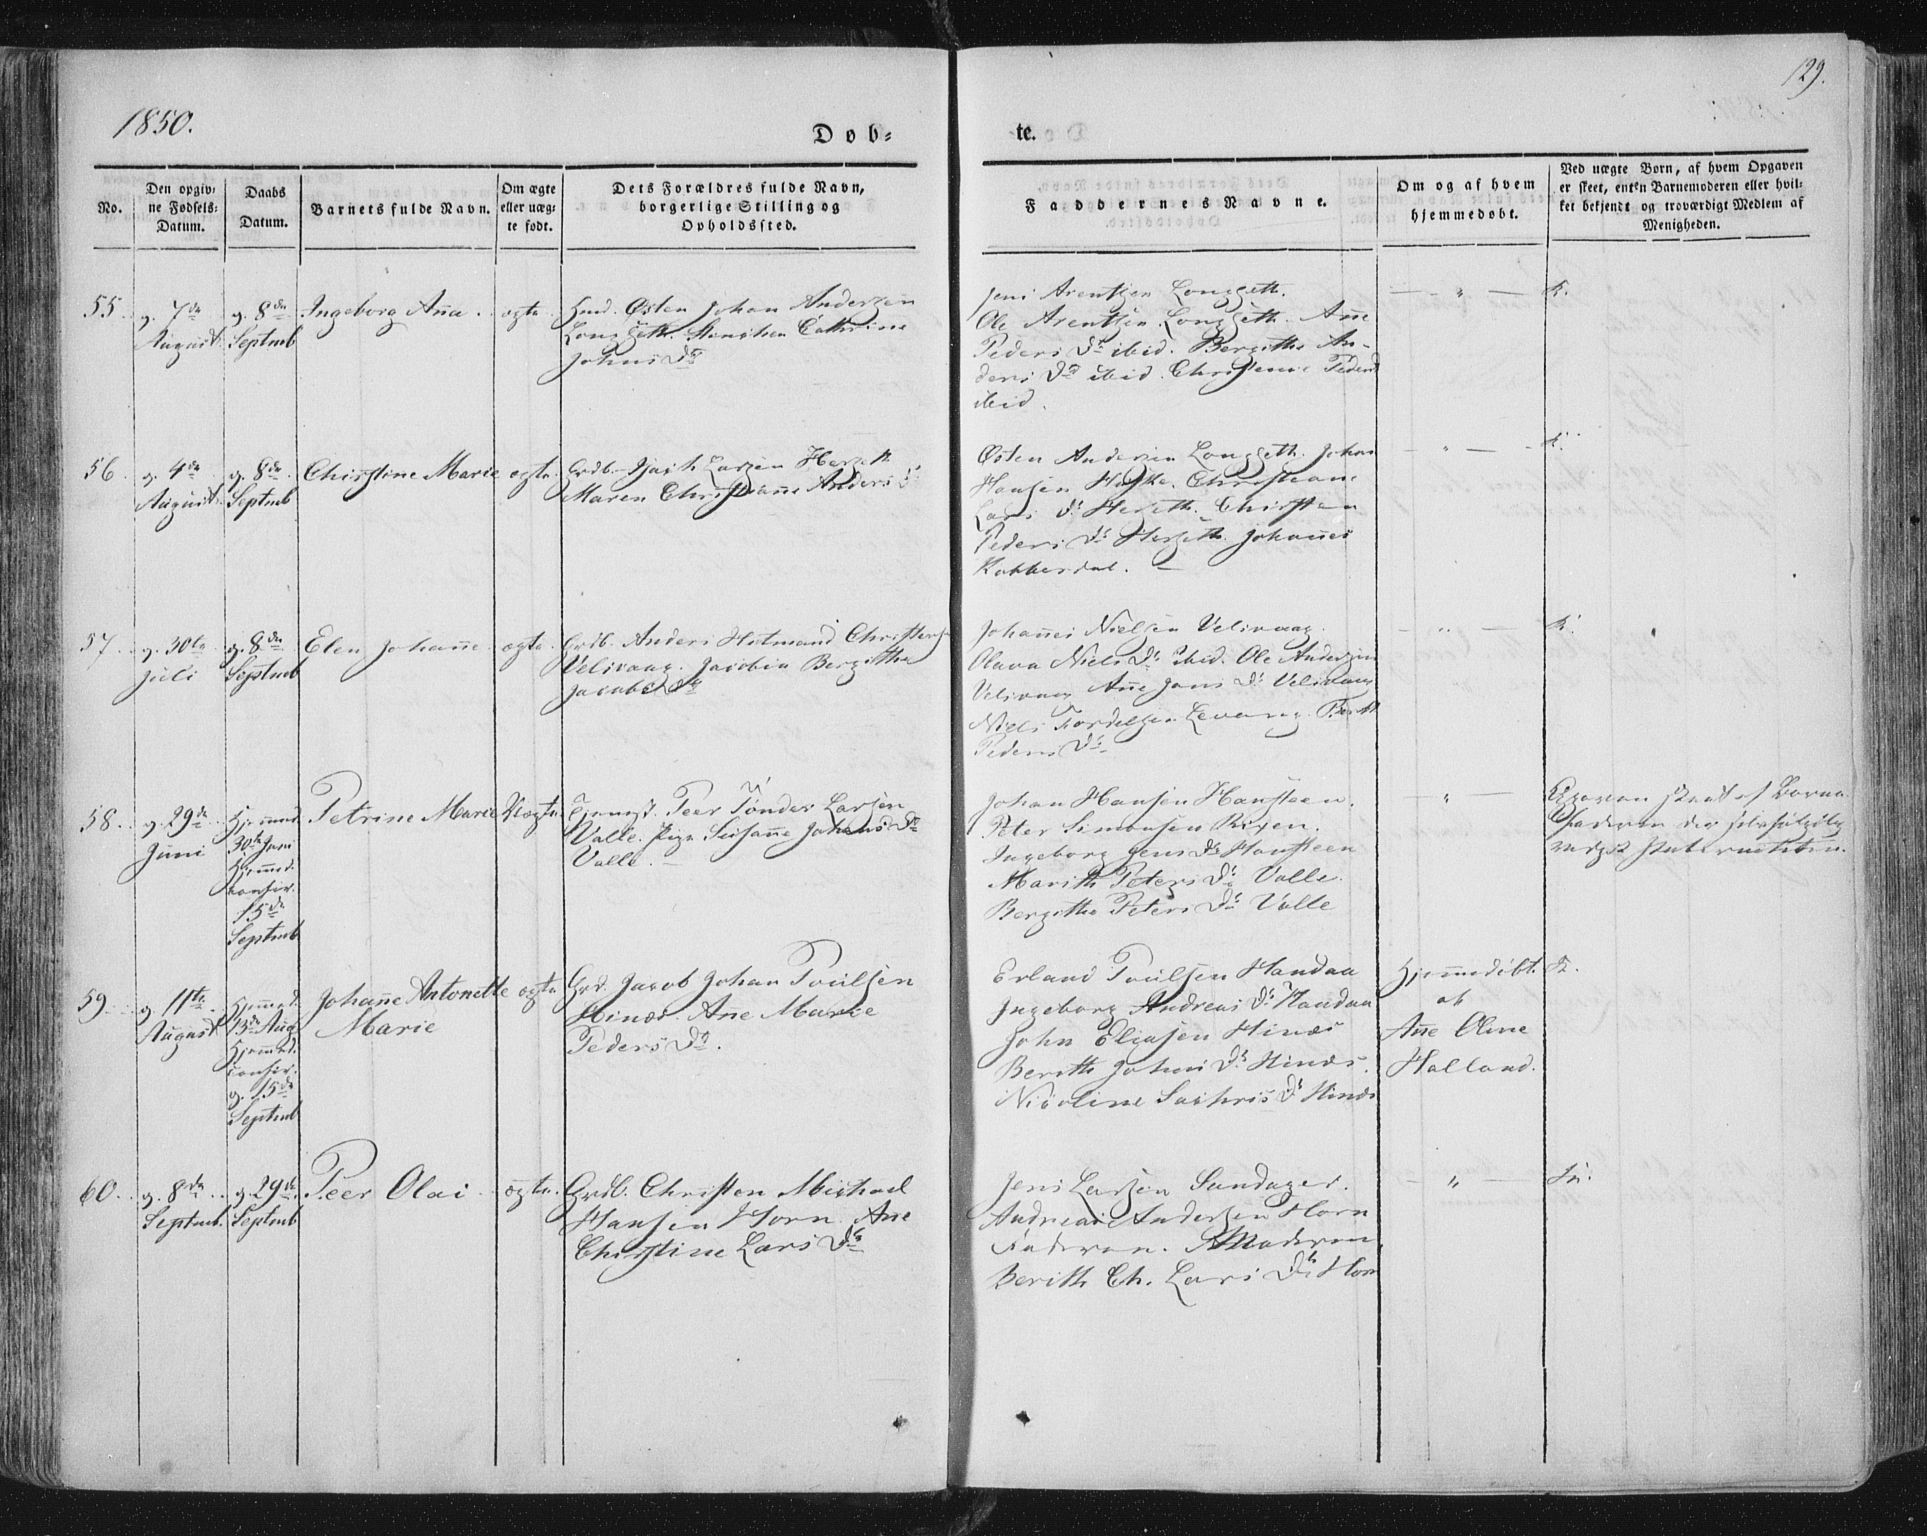 1850.
129.
Døb-
te.
No.
Den opgiv-
ne Fødsels-
Datum.
Daabs
Datum.
Barnets fulde Navn.
Om ægte
eller uæg-
te født.
Dets Forældres fulde Navn,
borgerlige Stilling og
Opholdssted.
Faddernes Navne.
Om og af hvem
hjemmedøbt.
Ved uægte Børn, af hvem Opgaven
er skeet, enten Barnemoderen eller hvil-
ket bekjendt og troværdigt Medlem af
Menigheden.
55.
g. 7de
August
g. 8de
Septmb
Ingeborg Aña
ægte
Østen Johan Andersen
Longseth. Cathrine
Johns Dr
Jens Arentzen Longseth.
Ole Arentzen Longseth. Ane
Peders Dr ibid. Bergithe An-
ders Dr ibid. Peders
ibid.
56
g. 4de
August
g. 8de
Septmb
Christine Marie
ægte
Grdb. Larsen
Maren Christiañe Anders D
Østen Andersen Longseth. Johan
Hansen
Lars Dr
Peders Dr Johañes
57
g. 30te
Juli
g. 8de
Septmb
Elen Johañe
ægte
Grdb. Anders Hotmand
Velivaag. Jacobia Bergitha
Jacobs Dr
Johañes Nielsen Velivaag.
Olava Niels Dr ibid. Ole Andersen
Velivaag Añe Jans Dr Velivaag
Niels Levang. Berit
Peders Dr
58
g. 29de
Juni
30te Juni
15de
Septmb
Petrine Marie
Uægte
Peer Tønder Larsen
Valle. Pige Susañe Johans Dr
Valle.
Johan Hansen Hansteen.
Peter Simonsen
Ingeborg Jens Dr Hansteen
Marith Peters Dr Valle.
Bergithe Peters Dr Valle
Opgaven skeet af Barne
faderen
59
g. 11te
August
Hjemmed.
13de Aug
Hjemmed.
g. 15de
Septmb
Johañe Antonette
Marie
ægte
Jacob Johan Poulsen
Hinæs. Ane Marie
Peders Dr.
Erland Poulsen Handaa
Ingeborg Andreas Dr Handaa
John Eliasen Hinæs
Berith Johns Dr Hinæs.
Nicoline Dr Hinæs
Hjemmedøbt
af
Añe Oline
Halland.
60
g. 8de
Septmb.
g. 29de
Septmb
Peer Olai
ægte
Grdb. Christen Michael
Hansen Horn. Ane
Christine Lars Dr
Jens Larsen Sandager.
Andreas Andersen Horn
Faderen. Moderen
Berith Ch. Lars Dr Horn